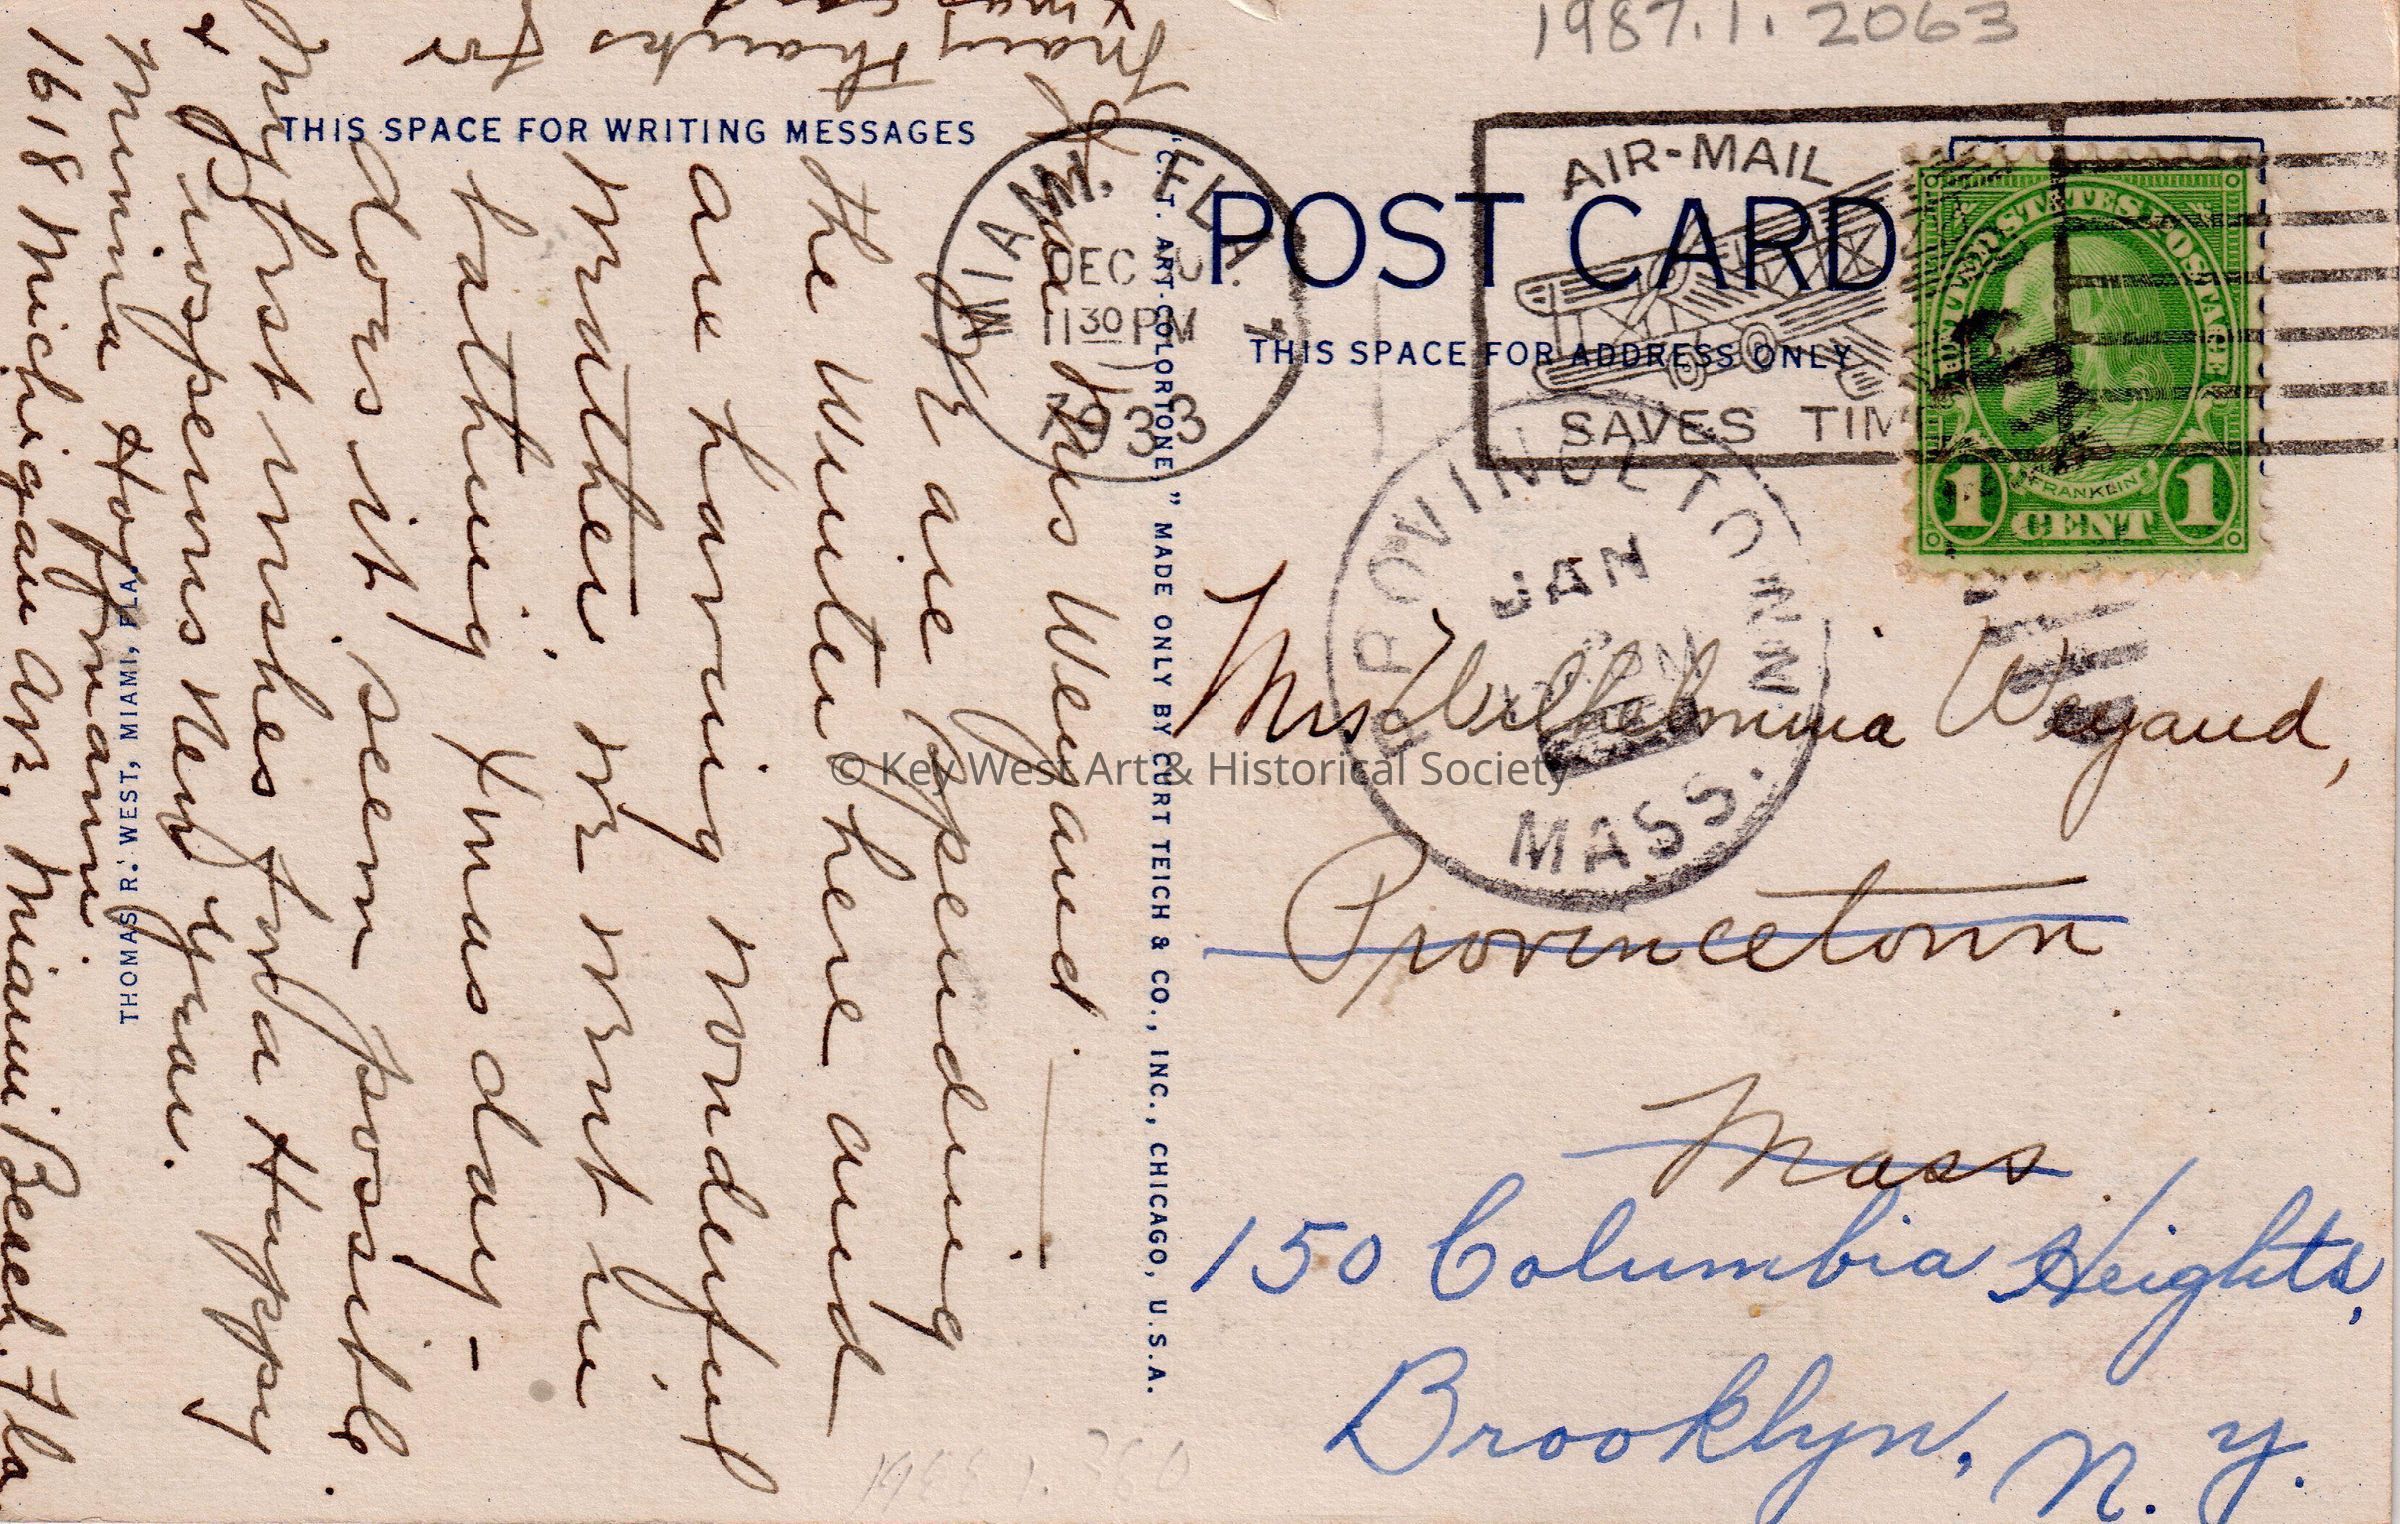 1987.1.2063
THIS SPACE FOR WRITING MESSAGES
POST CARD
THIS SPACE FOR ADDRESS ONLY
"C.T. ART-COLORTONE," MADE ONLY BY CURT TEICH & CO., INC., CHICAGO, U.S.A.
THOMAS R. WEST, MIAMI, FLA.
MIAMI, FLA.
DEC
11 30 PM
1933
AIR-MAIL
SAVES TIM
UNITED STATES POSTAGE
FRANKLIN
1 CENT 1
PROVINCETOWN
JAN
MASS.
Dear Mrs Weyand
We are spending
the Winter here and
are having wonderful
weather. We went in
bathing Xmas day -
does it seem possible.
My best wishes for a Happy
& prosperous New Year.
Minna Hoffmann.
1618 Michigan Ave. Miami Beach. Fla
Many thanks for
Xmas card
Mrs Wilhelmina Weyand,
Provincetown
Mass.
150 Columbia Heights,
Brooklyn, N. Y.
© Key West Art & Historical Society